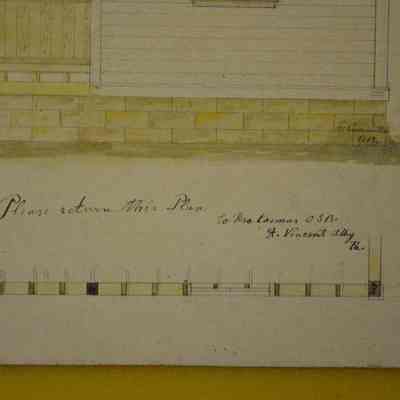 Please return this Plan
to Bro Cosmas O S B.
St. Vincent Abby
Pa.